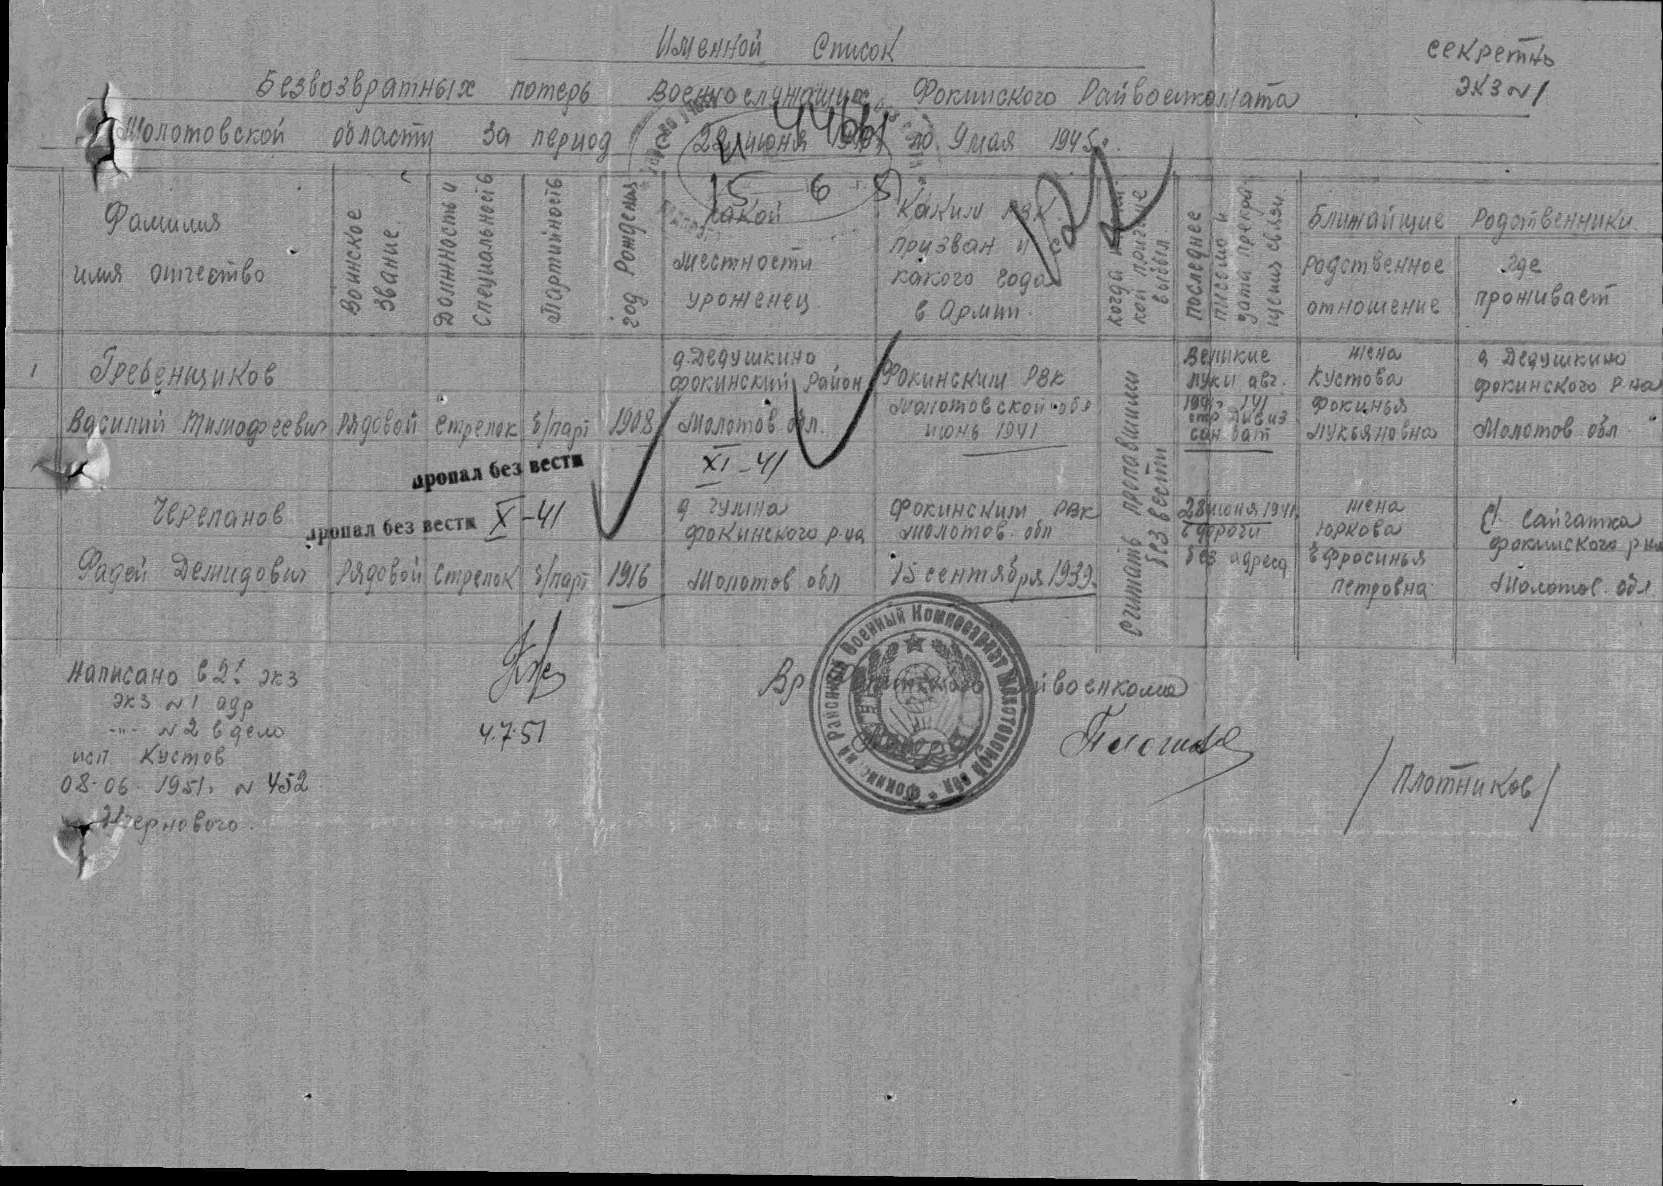 Именной Список
секретно
экз №1
Безвозвратных потерь военнослужащих Фокинского Райвоенкомата
Молотовской области за период 22 июня 1941 по 9 мая 1945г.
44661
15 6 51
Фамилия
имя отчество
Воинское
звание
Должность и
Специальность
Партийность
год Рождения
какой
местности
уроженец
Каким РВК
призван и с
какого года
в Армии.
когда и по какой причине
выбыл
последнее
письмо и
дата прекращения связи
Ближайшие Родственники
родственное
отношение
где
проживает
1
Гребенщиков
Василий Тимофеевич
Рядовой
стрелок
б/парт
1908
д. Дедушкино
Фокинский Район
Молотов обл.
XI-41
Фокинским РВК
Молотовской обл
июнь 1941
Великие
луки авг.
1941г 141
стр дивиз
сан бат
жена
Кустова
Фокинья
Лукьяновна
д Дедушкино
Фокинского р-на
Молотов обл
пропал без вести
Считать пропавшими
без вести
Черепанов
Фадей Демидович
пропал без вести X-41
Рядовой
стрелок
б/парт
1916
д Чумна
Фокинского р-на
Молотов обл
Фокинским РВК
Молотов. обл
15 сентября 1939.
28 июня 1941
с дороги
без адреса
жена
Юркова
Ефросинья
петровна
с. Сайгатка
Фокинского р-на
Молотов. обл
Написано в 2х экз
экз №1 адр
-"- №2 в дело
исп Кустов
08-06-1951г № 452
Чернового.
4.7.51
Вр Фокинского Райвоенкома
Фокинский Районный Военный Комиссариат Молотовской обл
/Плотников/